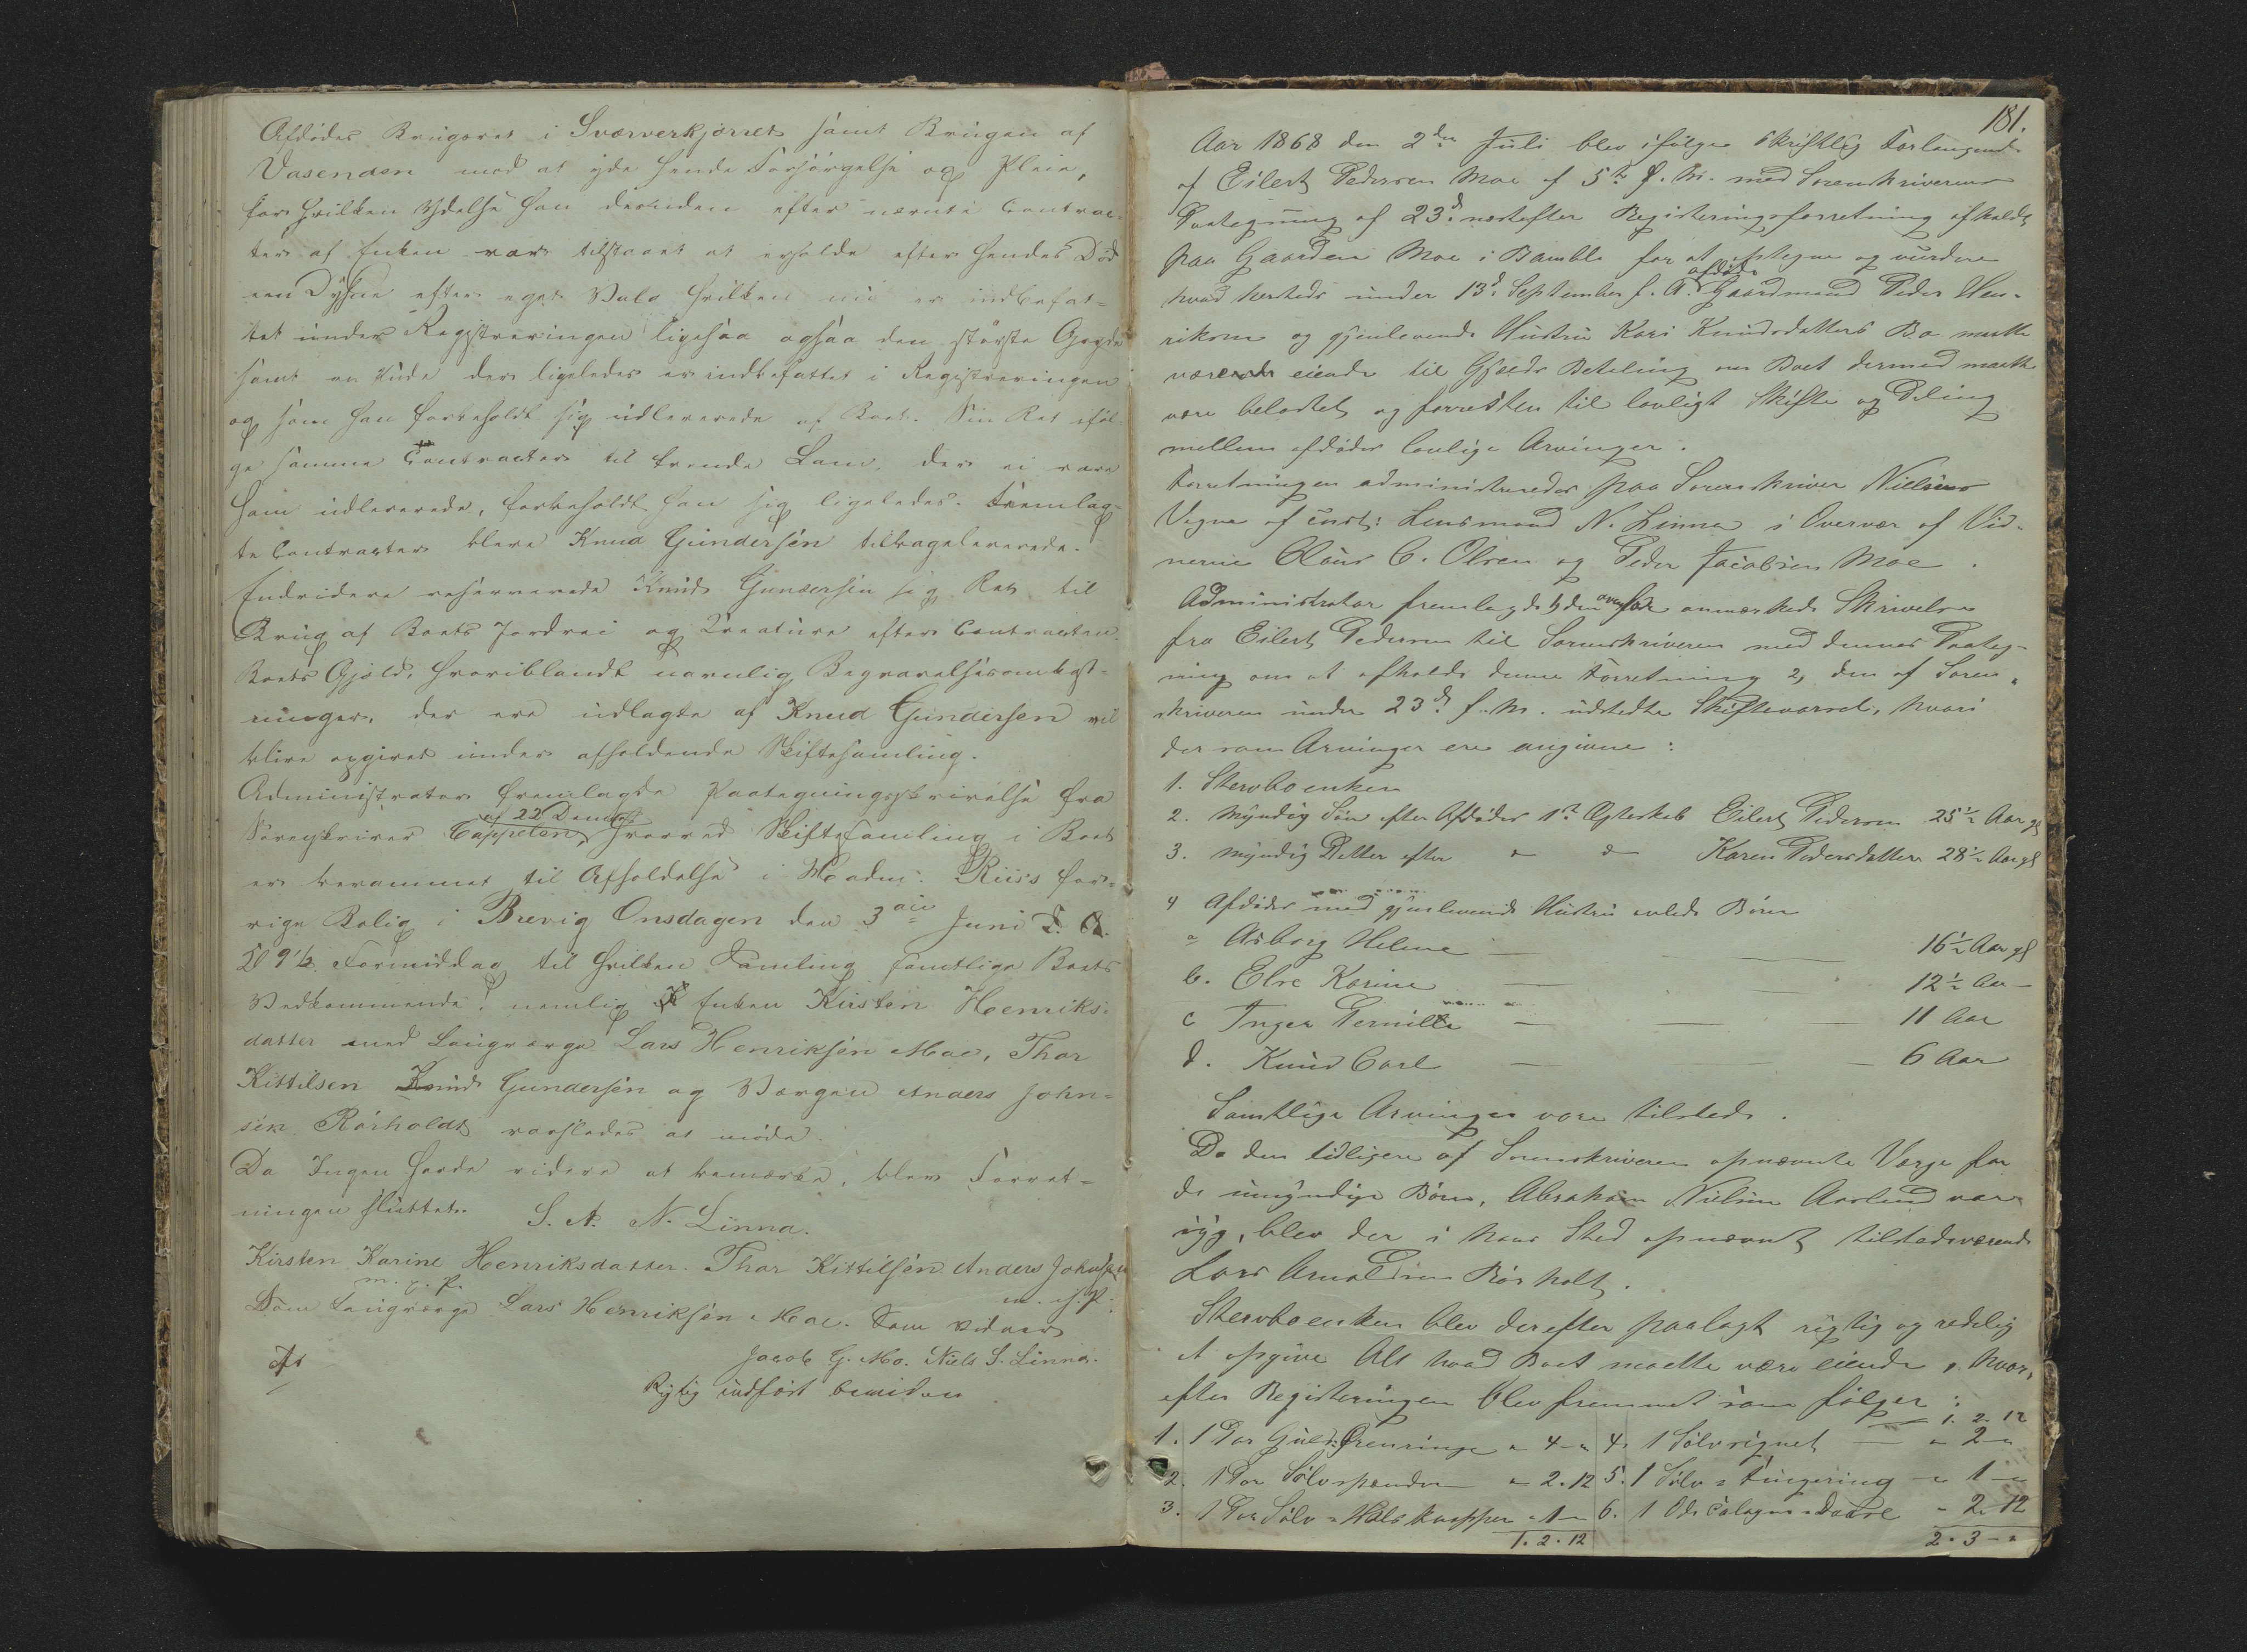 Afdødes Brugsret i Sværverkjærret samt Brugen af
Vasenden mod at yde hende Forsørgelse og Pleie,
for hvilken Ydelse han desuden efter nævnte Contrac-
ter af Enken var tilstaaet at erholde efter hendes Død
een Dyhne efter eget Valg hvilken nu er indbefat-
tet under Registreringen ligesaa ogsaa den største Gryde
samt en Kude der ligeledes er indbefattet i Registreringen
og som han forbeholdt sig udleverede af Boet. Sin Ret iføl-
ge samme Contracter til trende Lam, der ei vare
ham udleverede, forbeholdt han sig ligeledes. Fremlag-
te Contracter bleve Knud Gundersen tilbageleverede.
Endvidere reserverede Knud Gundersen sig Ret til
Brug af Boets Jordvei og Creature efter Contracten.
Boets Gjæld, hvoriblandt navnlig Begravelsesomkost-
ninger, der ere udlagte af Knud Gundersen vil
blive opgivet under afholdende Skiftesamling.
Administrator fremlagde Paategningsskrivelse fra
af 22 Dennes
Sorenskriver Cappelen, hvorved Skiftesamling i Boet
er berammet til Afholdelse i Madm. Riis's for-
rige Bolig i Brevig Onsdagen den 3die Juni d. A.
Kl 9½ Formiddag til hvilken Samling samtlige Boets
Vedkommende, nemlig Enken Kirsten Henriks-
datter med Laugværge Lars Henriksen Moe, Thor
Kittilsen Knud Gundersen og Værgen Anders John-
sen Rørholdt varsledes at møde.
Da Ingen havde videre at bemærke, blev Forret-
ningen sluttet. S. A. N. Linna.
Kirsten Karine Henriksdatter. Thor Kittilsen. Anders Johnsen
m. p. P. m. p. P.
Som Laugværge Lars Henriksen Moe. Som Vidner
Jacob G. Mo. Niels S. Linna.
Rigtig indført bevidner
181.
Aar 1868 den 2den Juli blev ifølge skriftlig Forlangende
af Eilert Pedersen Moe af 5te f. M. med Sorenskriverens
Paategning af 23d næstefter Registreringsforretning afholdt
paa Gaarden Moe i Bamble for at optegne og vurdere
afdøde
hvad herteds under 13d September f. A. Gaardmand Peder Hen-
riksen og gjenlevende Hustru Kari Knudsdatters Bo maatte
være eiende til Gjælds Betaling om Boet dermed maatte
være belastet og forresten til lovligt Skifte og Deling
mellem afdødes lovlige Arvinger.
Forretningen administreredes paa Sorenskriver Nielsens
Vegne af const: Lensmand N. Linna i Overvær af Vid-
nerne Claus C. Olsen og Peder Jacobsen Moe.
Administrator fremlagde 1, den ovenfor anmærkede Skrivelse
fra Eilert Pedersen til Sorenskriveren med dennes Paateg-
ning om at afholde denne Forretning 2, den af Soren-
skriveren under 23d f. M. udstedte Skiftevarsel, hvori
der som Arvinger ere angivne:
1. Stervboenken
2. Myndig Søn efter Afdødes 1ste Ægteskab Eilert Pedersen 25½ Aar gl
3. Myndig Datter efter " " Karen Pedersdatter 28½ Aar gl
4 Afdødes med gjenlevende Hustru avlede Børn
a Asborg Helene — 16½ Aar gl
b. Else Karine — 12½ Aar
c Inger Pernille — 11 Aar
d. Knud Carl — 6 Aar
Samtlige Arvinger vare tilstede.
Da den tidligere af Sorenskriveren opnævnte Værge for
de umyndige Børn, Abraham Nielsen Aaslund var
syg, blev der i hans Sted opnævnt tilstedeværende
Lars Arnoldsen Rørholt.
Stervboenken blev derefter paalagt rigtig og redelig
at opgive Alt hvad Boet maatte være eiende, hvor-
efter Registeringen blev fremmet som følger:
1. 2. 12
1. 1 Par Guld Ørenringe " 4 " 4. 1 Sølvsignet — " 2 "
2. 1 Par Sølvspænder " 2. 12 5. 1 Sølv=Fingering " 1 "
3. 1 Par Sølv=Halsknapper " 1 " 6. 1 Ode cologne=Daase " 2. 12
1. 2. 12 2. 3 "